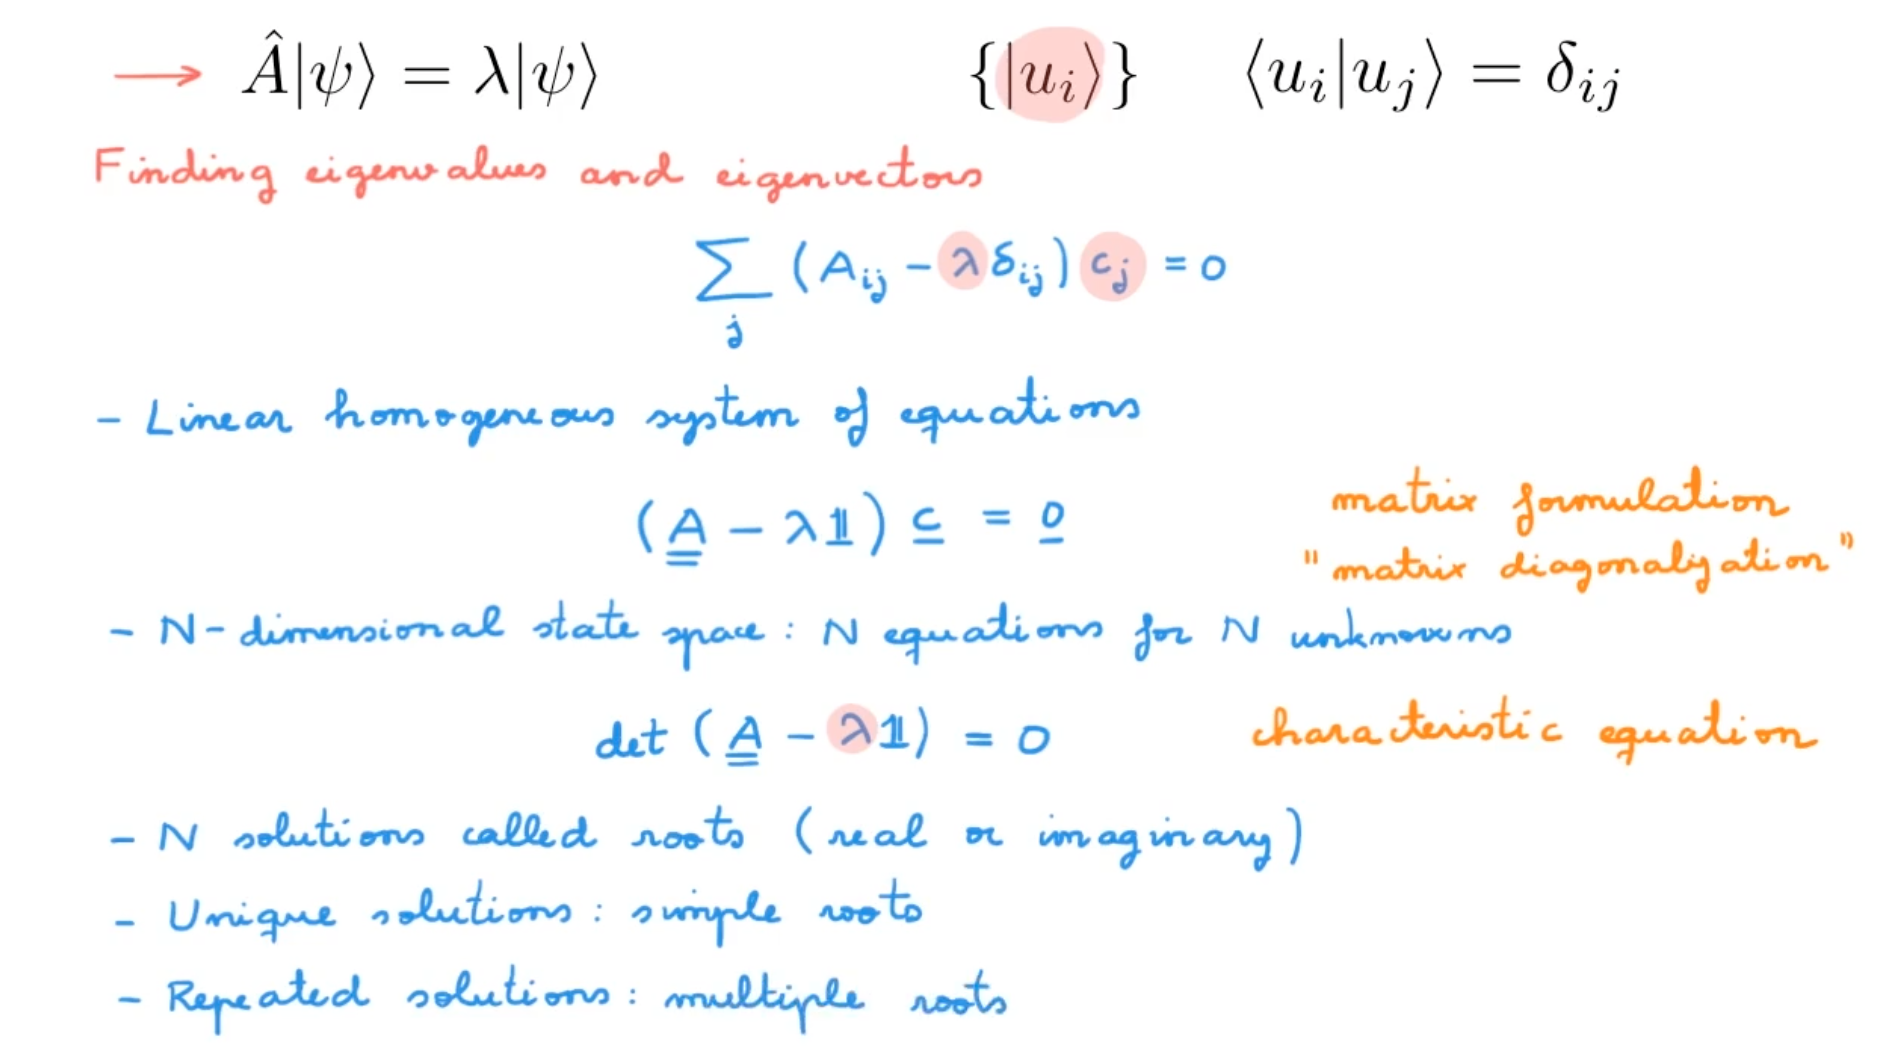 → Â|ψ⟩ = λ|ψ⟩ {|uᵢ⟩} ⟨uᵢ|uⱼ⟩ = δᵢⱼ
Finding eigenvalues and eigenvectors
∑ⱼ (Aᵢⱼ - λδᵢⱼ) cⱼ = 0
- Linear homogeneous system of equations
(A - λ𝟙) c = 0
matrix formulation
"matrix diagonalization"
- N-dimensional state space: N equations for N unknowns
det (A - λ𝟙) = 0 characteristic equation
- N solutions called roots (real or imaginary)
- Unique solutions: simple roots
- Repeated solutions: multiple roots